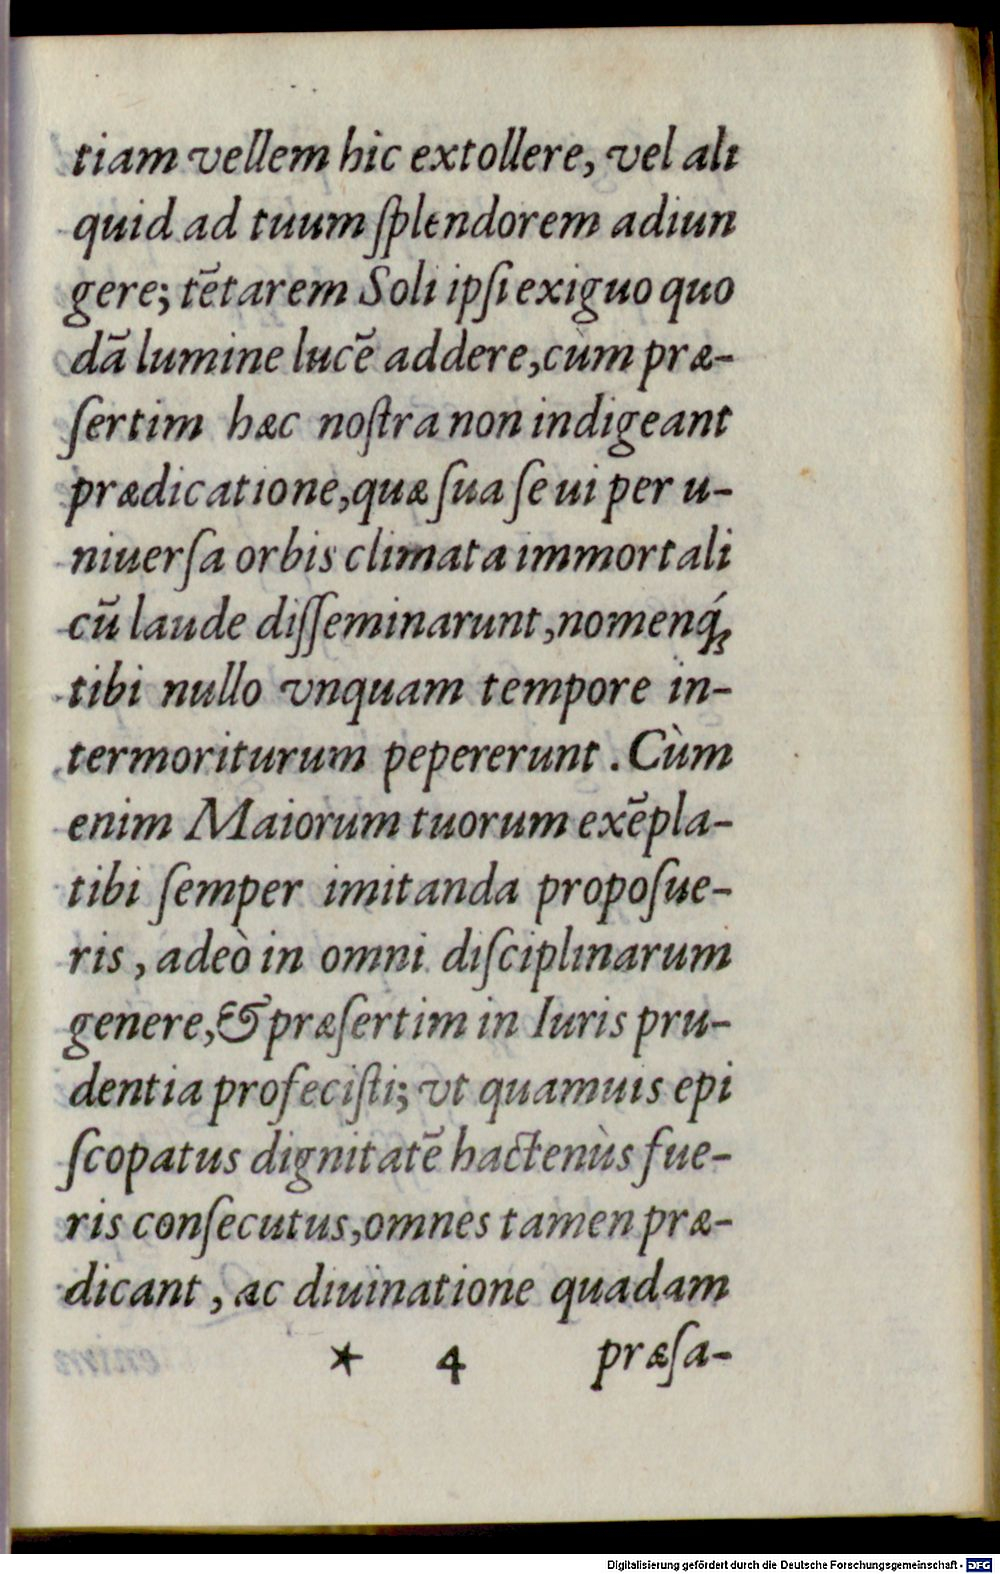 tiam vellem hic extollere, vel ali
quid ad tuum ſplendorem adiun
gere; tẽtarem Soli ipſi exiguo quo
dã lumine lucẽ addere, cùm præ-
ſertim hæc noſtra non indigeant
prædicatione, quæ ſua ſe ui per u-
niuerſa orbis climata immortali
cũ laude diſſeminarunt, nomenq́;
tibi nullo vnquam tempore in-
termoriturum pepererunt. Cùm
enim Maiorum tuorum exẽpla-
tibi ſemper imitanda propoſue-
ris, adeò in omni diſciplinarum
genere, & præſertim in Iuris pru-
dentia profeciſti; vt quamuis epi
ſcopatus dignitatẽ hactenùs fue-
ris conſecutus, omnes tamen præ-
dicant, ac diuinatione quadam
* 4 præſa-
Digitalisierung gefördert durch die Deutsche Forschungsgemeinschaft - DFG